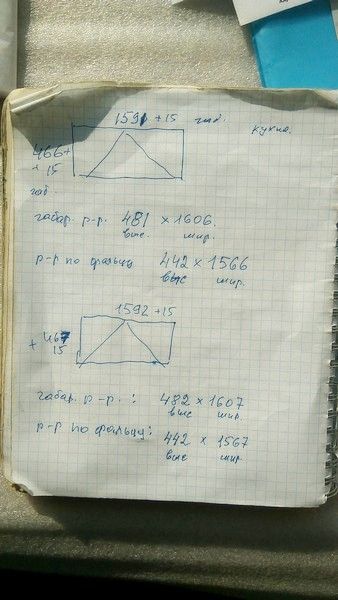 1591 +15 габ.
кухня.
466+
+ 15
габ.
габар. р-р. 481 × 1606.
выс. шир.
р-р по фальцу 442 × 1566
выс шир.
1592 +15
467
+ 15
габар. р-р. : 482 × 1607
выс шир.
р-р по фальцу: 442 × 1567
выс шир.